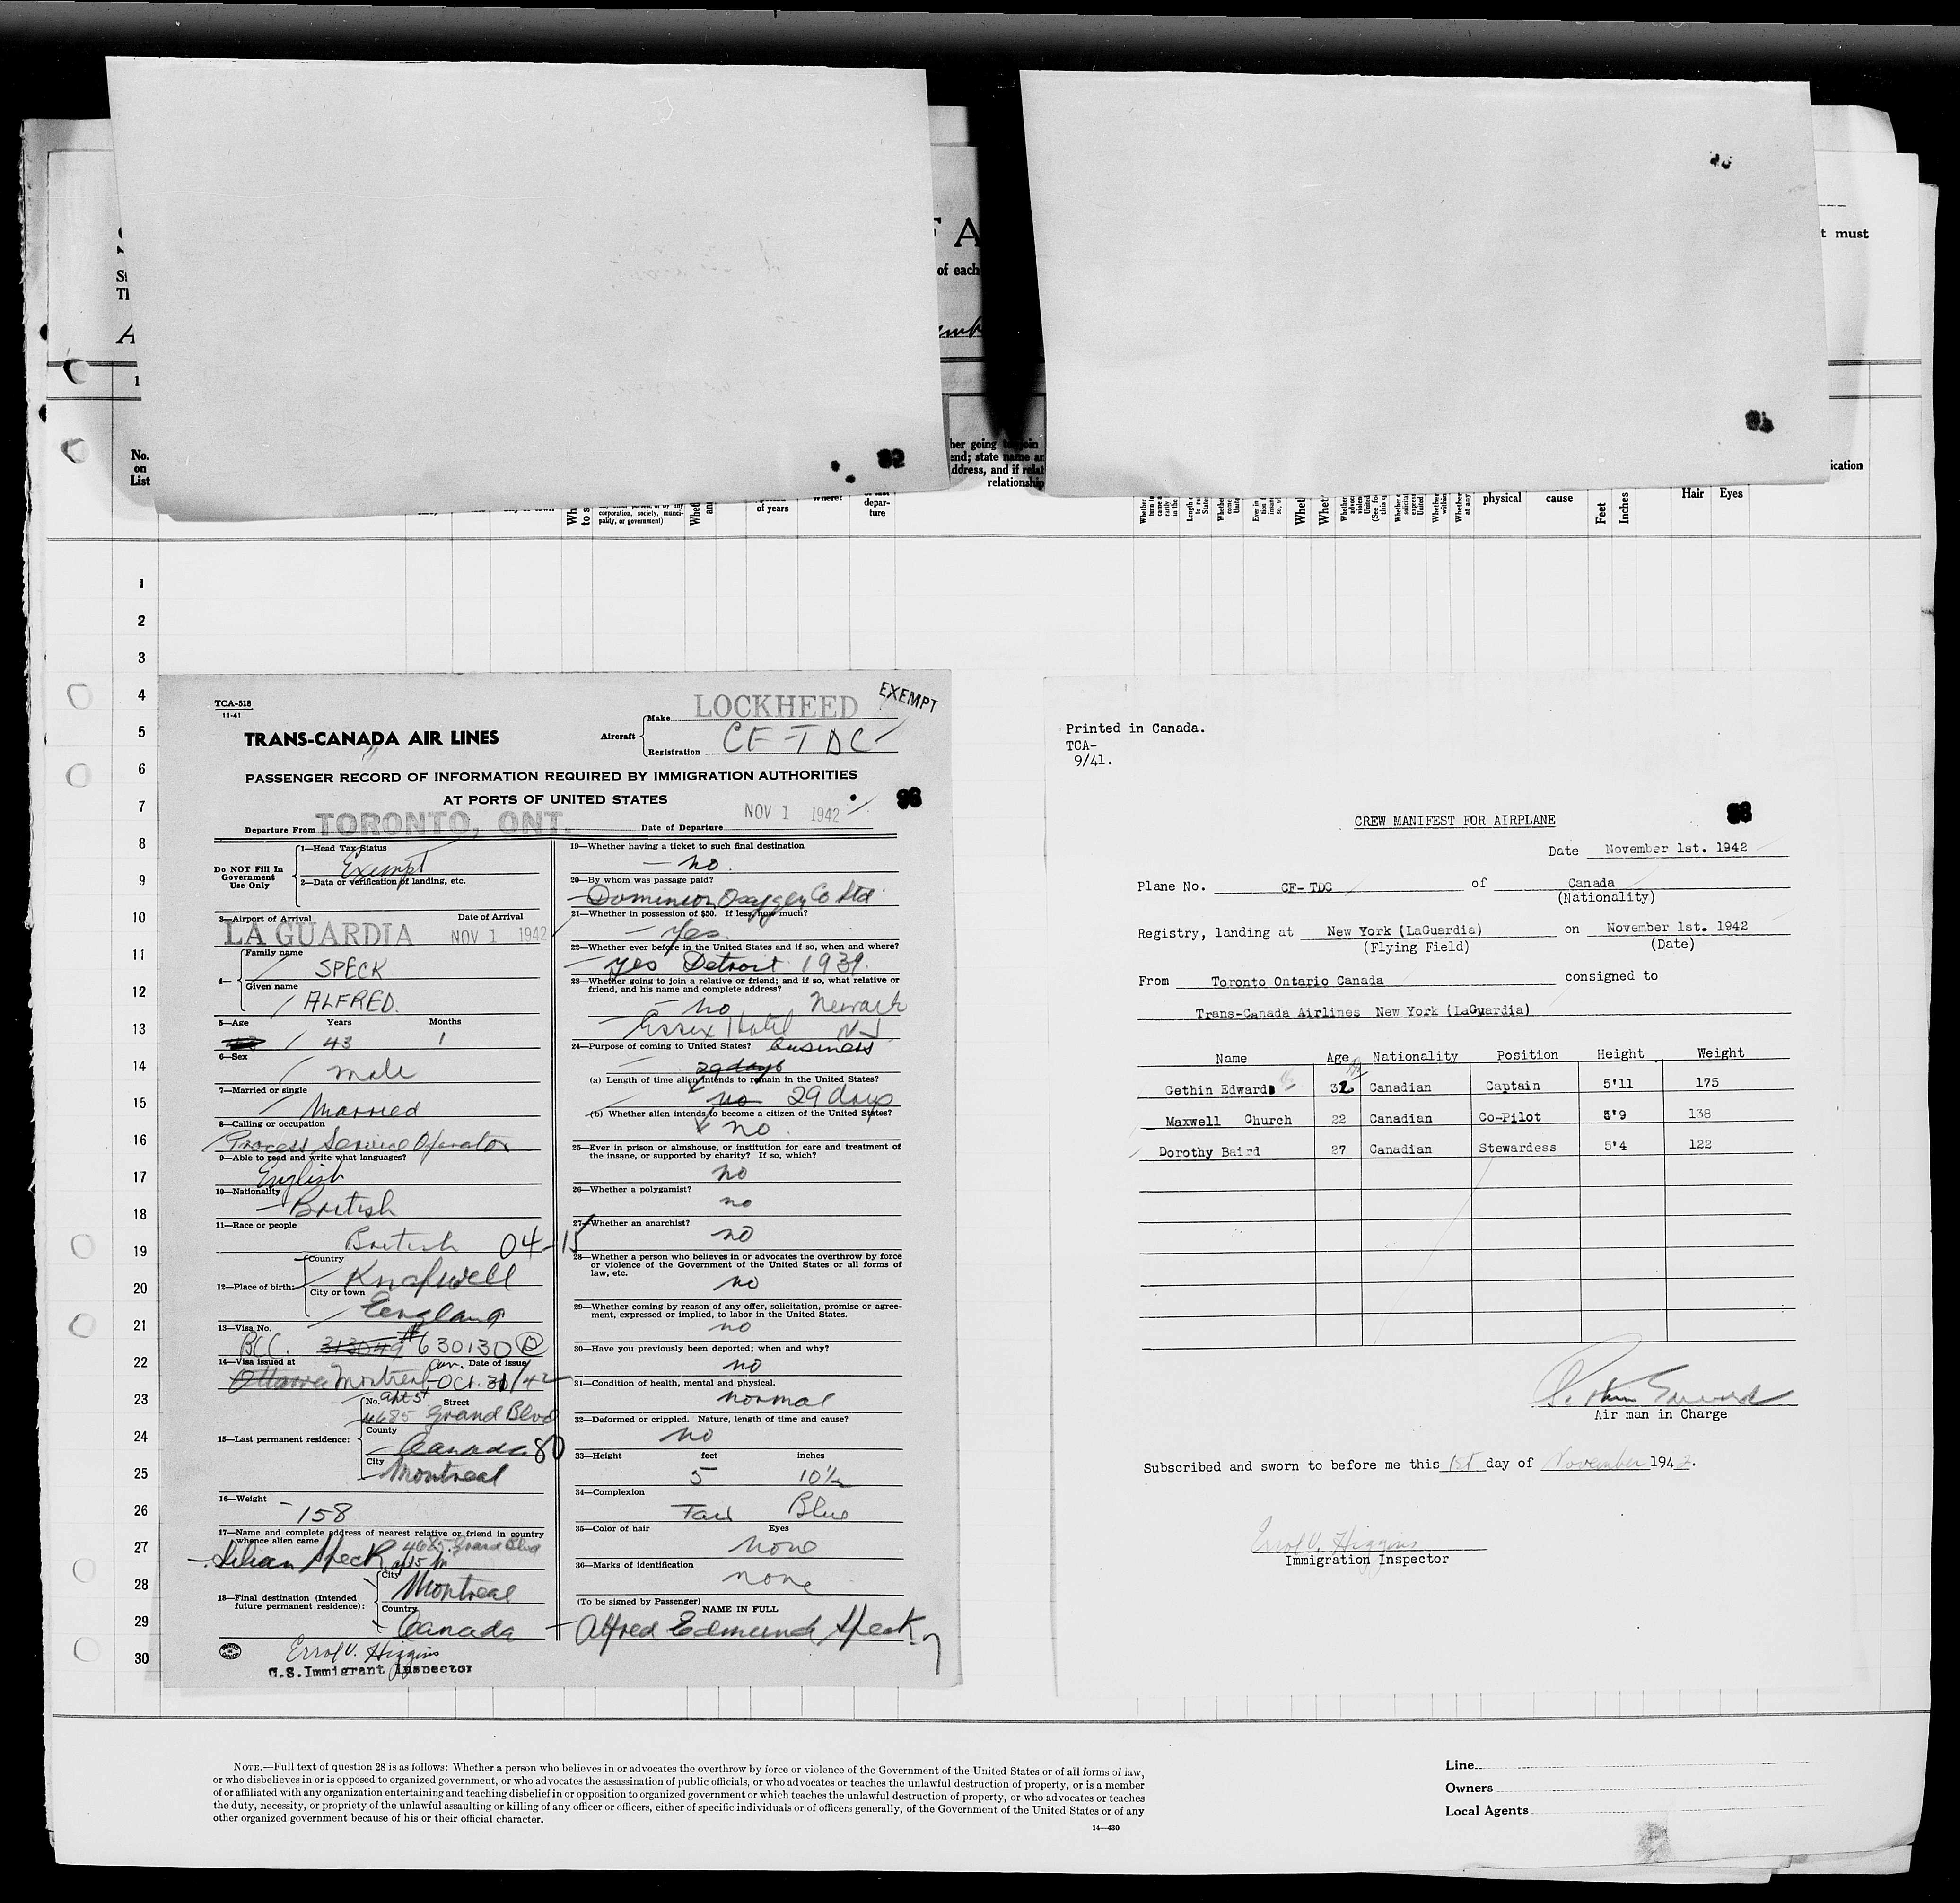 F A
t must
St
of each
Th
A
1
her going to join
end; state name an
ddress, and if relat
relationship
No.
on
List
ication
corporation, society, munici-
pality, or government)
of years
where?
depar-
ture
physical
cause
Feet
Inches
Hair
Eyes
92
1
2
3
4
5
6
7
8
9
10
11
12
13
14
15
16
17
18
19
20
21
22
23
24
25
26
27
28
29
30
TCA-518
11-41
LOCKHEED
EXEMPT
TRANS-CANADA AIR LINES
Aircraft
Make
Registration CF-TDC
PASSENGER RECORD OF INFORMATION REQUIRED BY IMMIGRATION AUTHORITIES
AT PORTS OF UNITED STATES
Departure From TORONTO, ONT.
Date of Departure NOV 1 1942
Do NOT Fill In
Government
Use Only
1—Head Tax Status
Exempt
2—Data or verification of landing, etc.
3—Airport of Arrival Date of Arrival
LA GUARDIA NOV 1 1942
4— Family name
SPECK
Given name
ALFRED.
5—Age Years Months
43 1
6—Sex
male
7—Married or single
Married
8—Calling or occupation
Process Service Operator
9—Able to read and write what languages?
English
10—Nationality
British
11—Race or people
British 04-15
12—Place of birth: Country
Knapwell
City or town
England
13—Visa No.
BCC. 313049 # 630130
14—Visa issued at Date of issue
Ottawa Montreal Can. Oct. 31/42
15—Last permanent residence: No. Street
Apt 5
4685 Grand Blvd
County
Canada 80
City
Montreal
16—Weight
158
17—Name and complete address of nearest relative or friend in country
whence alien came
4685 Grand Blvd
Lilian Speck
18—Final destination (Intended
future permanent residence):
City
Montreal
Country
Canada
Errol V. Higgins
U.S. Immigrant Inspector
19—Whether having a ticket to such final destination
no.
20—By whom was passage paid?
Dominion Oxygen Co Ltd
21—Whether in possession of $50. If less, how much?
Yes.
22—Whether ever before in the United States and if so, when and where?
yes Detroit 1939.
23—Whether going to join a relative or friend; and if so, what relative or
friend, and his name and complete address?
no Newark
Essex Hotel NJ
24—Purpose of coming to United States? business
29 days
(a) Length of time alien intends to remain in the United States?
no 29 days
(b) Whether alien intends to become a citizen of the United States?
no.
25—Ever in prison or almshouse, or institution for care and treatment of
the insane, or supported by charity? If so, which?
no
26—Whether a polygamist?
no
27—Whether an anarchist?
no
28—Whether a person who believes in or advocates the overthrow by force
or violence of the Government of the United States or all forms of
law, etc.
no
29—Whether coming by reason of any offer, solicitation, promise or agree-
ment, expressed or implied, to labor in the United States.
no
30—Have you previously been deported; when and why?
no
31—Condition of health, mental and physical.
normal
32—Deformed or crippled. Nature, length of time and cause?
no
33—Height feet inches
5 10½
34—Complexion
Fair Blue
35—Color of hair Eyes
none
36—Marks of identification
none
(To be signed by Passenger)
NAME IN FULL
Alfred Edmund Speck
Printed in Canada.
TCA-
9/41.
CREW MANIFEST FOR AIRPLANE
Date November 1st. 1942
Plane No. CF-TDC of Canada
(Nationality)
Registry, landing at New York (LaGuardia) on November 1st. 1942
(Flying Field) (Date)
From Toronto Ontario Canada consigned to
Trans-Canada Airlines New York (LaGuardia)
Name Age Nationality Position Height Weight
Gethin Edwards 32 Canadian Captain 5'11 175
Maxwell Church 22 Canadian Co-Pilot 5'9 138
Dorothy Baird 27 Canadian Stewardess 5'4 122
Air man in Charge
Subscribed and sworn to before me this 1st day of November 1942.
Errol V. Higgins
Immigration Inspector
NOTE.—Full text of question 28 is as follows: Whether a person who believes in or advocates the overthrow by force or violence of the Government of the United States or of all forms of law,
or who disbelieves in or is opposed to organized government, or who advocates the assassination of public officials, or who advocates or teaches the unlawful destruction of property, or is a member
of or affiliated with any organization entertaining and teaching disbelief in or opposition to organized government or which teaches the unlawful destruction of property, or who advocates or teaches
the duty, necessity, or propriety of the unlawful assaulting or killing of any officer or officers, either of specific individuals or of officers generally, of the Government of the United States or of any
other organized government because of his or their official character.
14—430
Line
Owners
Local Agents